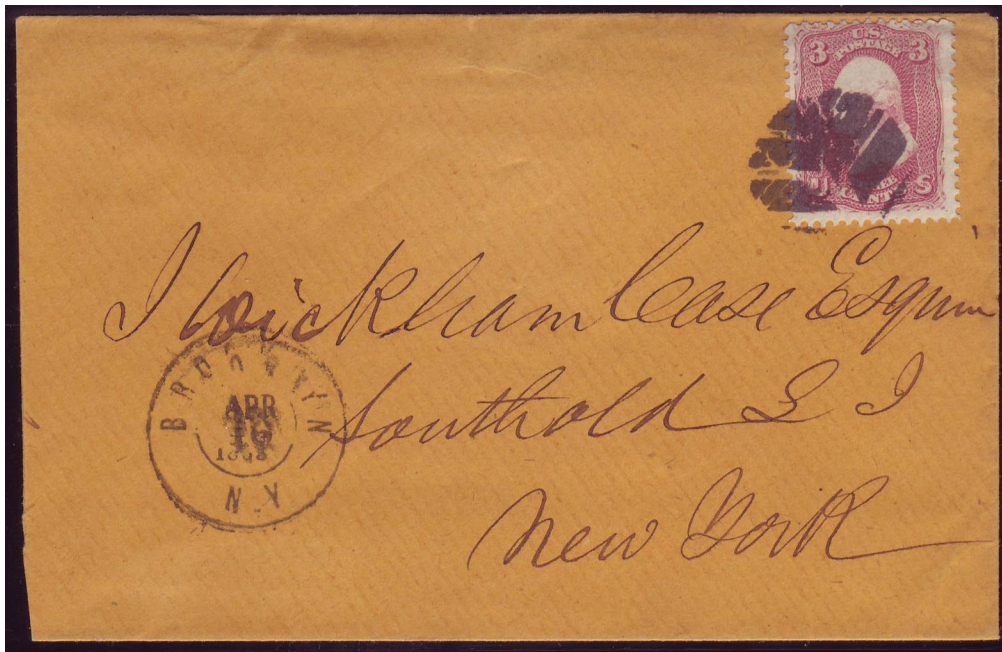 U.S.
POSTAGE
3 3
U S
CENTS
J Wickham Case Esquire
Southold L I
New York
BROOKLYN
APR
N.Y.